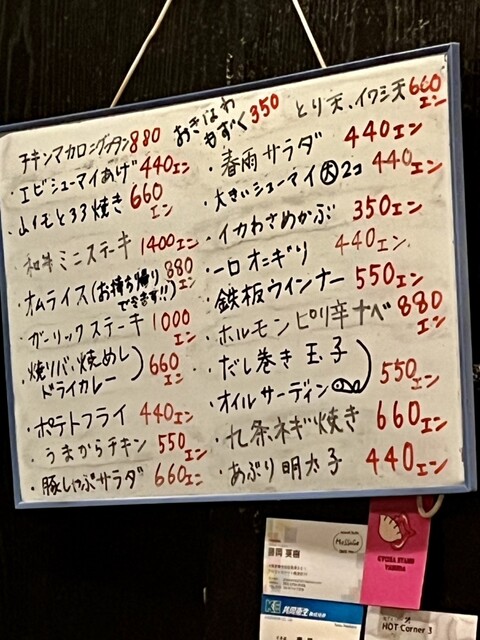 チキンマカロニグラタン880
・エビシューマイあげ440エン
・山イモとろろ焼き660エン
・和牛ミニステーキ1400エン
・オムライス(お持ち帰りできます!!)880エン
・ガーリックステーキ1000エン
・焼ソバ・焼めし
ドライカレー
660エン
・ポテトフライ440エン
・うまからチキン550エン
・豚しゃぶサラダ660エン
おきなわもずく350
とり天、イワシ天660エン
・春雨サラダ440エン
・大きいシューマイ大2コ440エン
・イカわさめかぶ350エン
・一口オニギリ440エン
・鉄板ウインナー550エン
・ホルモンピリ辛ナベ880エン
・だし巻き玉子
・オイルサーディン
550エン
・九条ネギ焼き660エン
・あぶり明太子440エン
GYOZA STAND
KE 共同衛生
HOT Corner 3